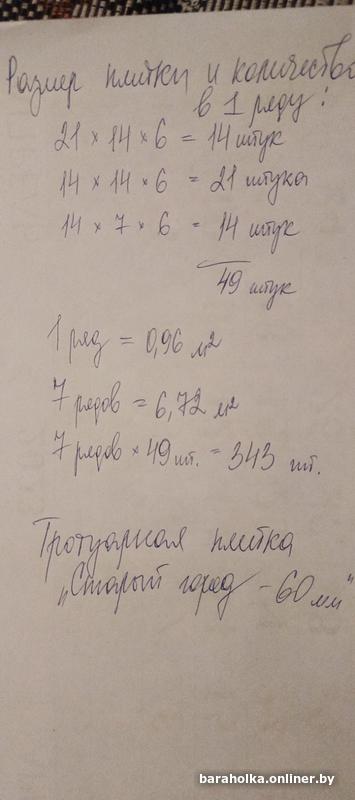 Размер плитки и количество
в 1 ряду:
21 × 14 × 6 = 14 штук
14 × 14 × 6 = 21 штука
14 × 7 × 6 = 14 штук
49 штук
1 ряд = 0,96 м²
7 рядов = 6,72 м²
7 рядов × 49 шт. = 343 шт.
Тротуарная плитка
„Старый город - 60 мм"
baraholka.onliner.by